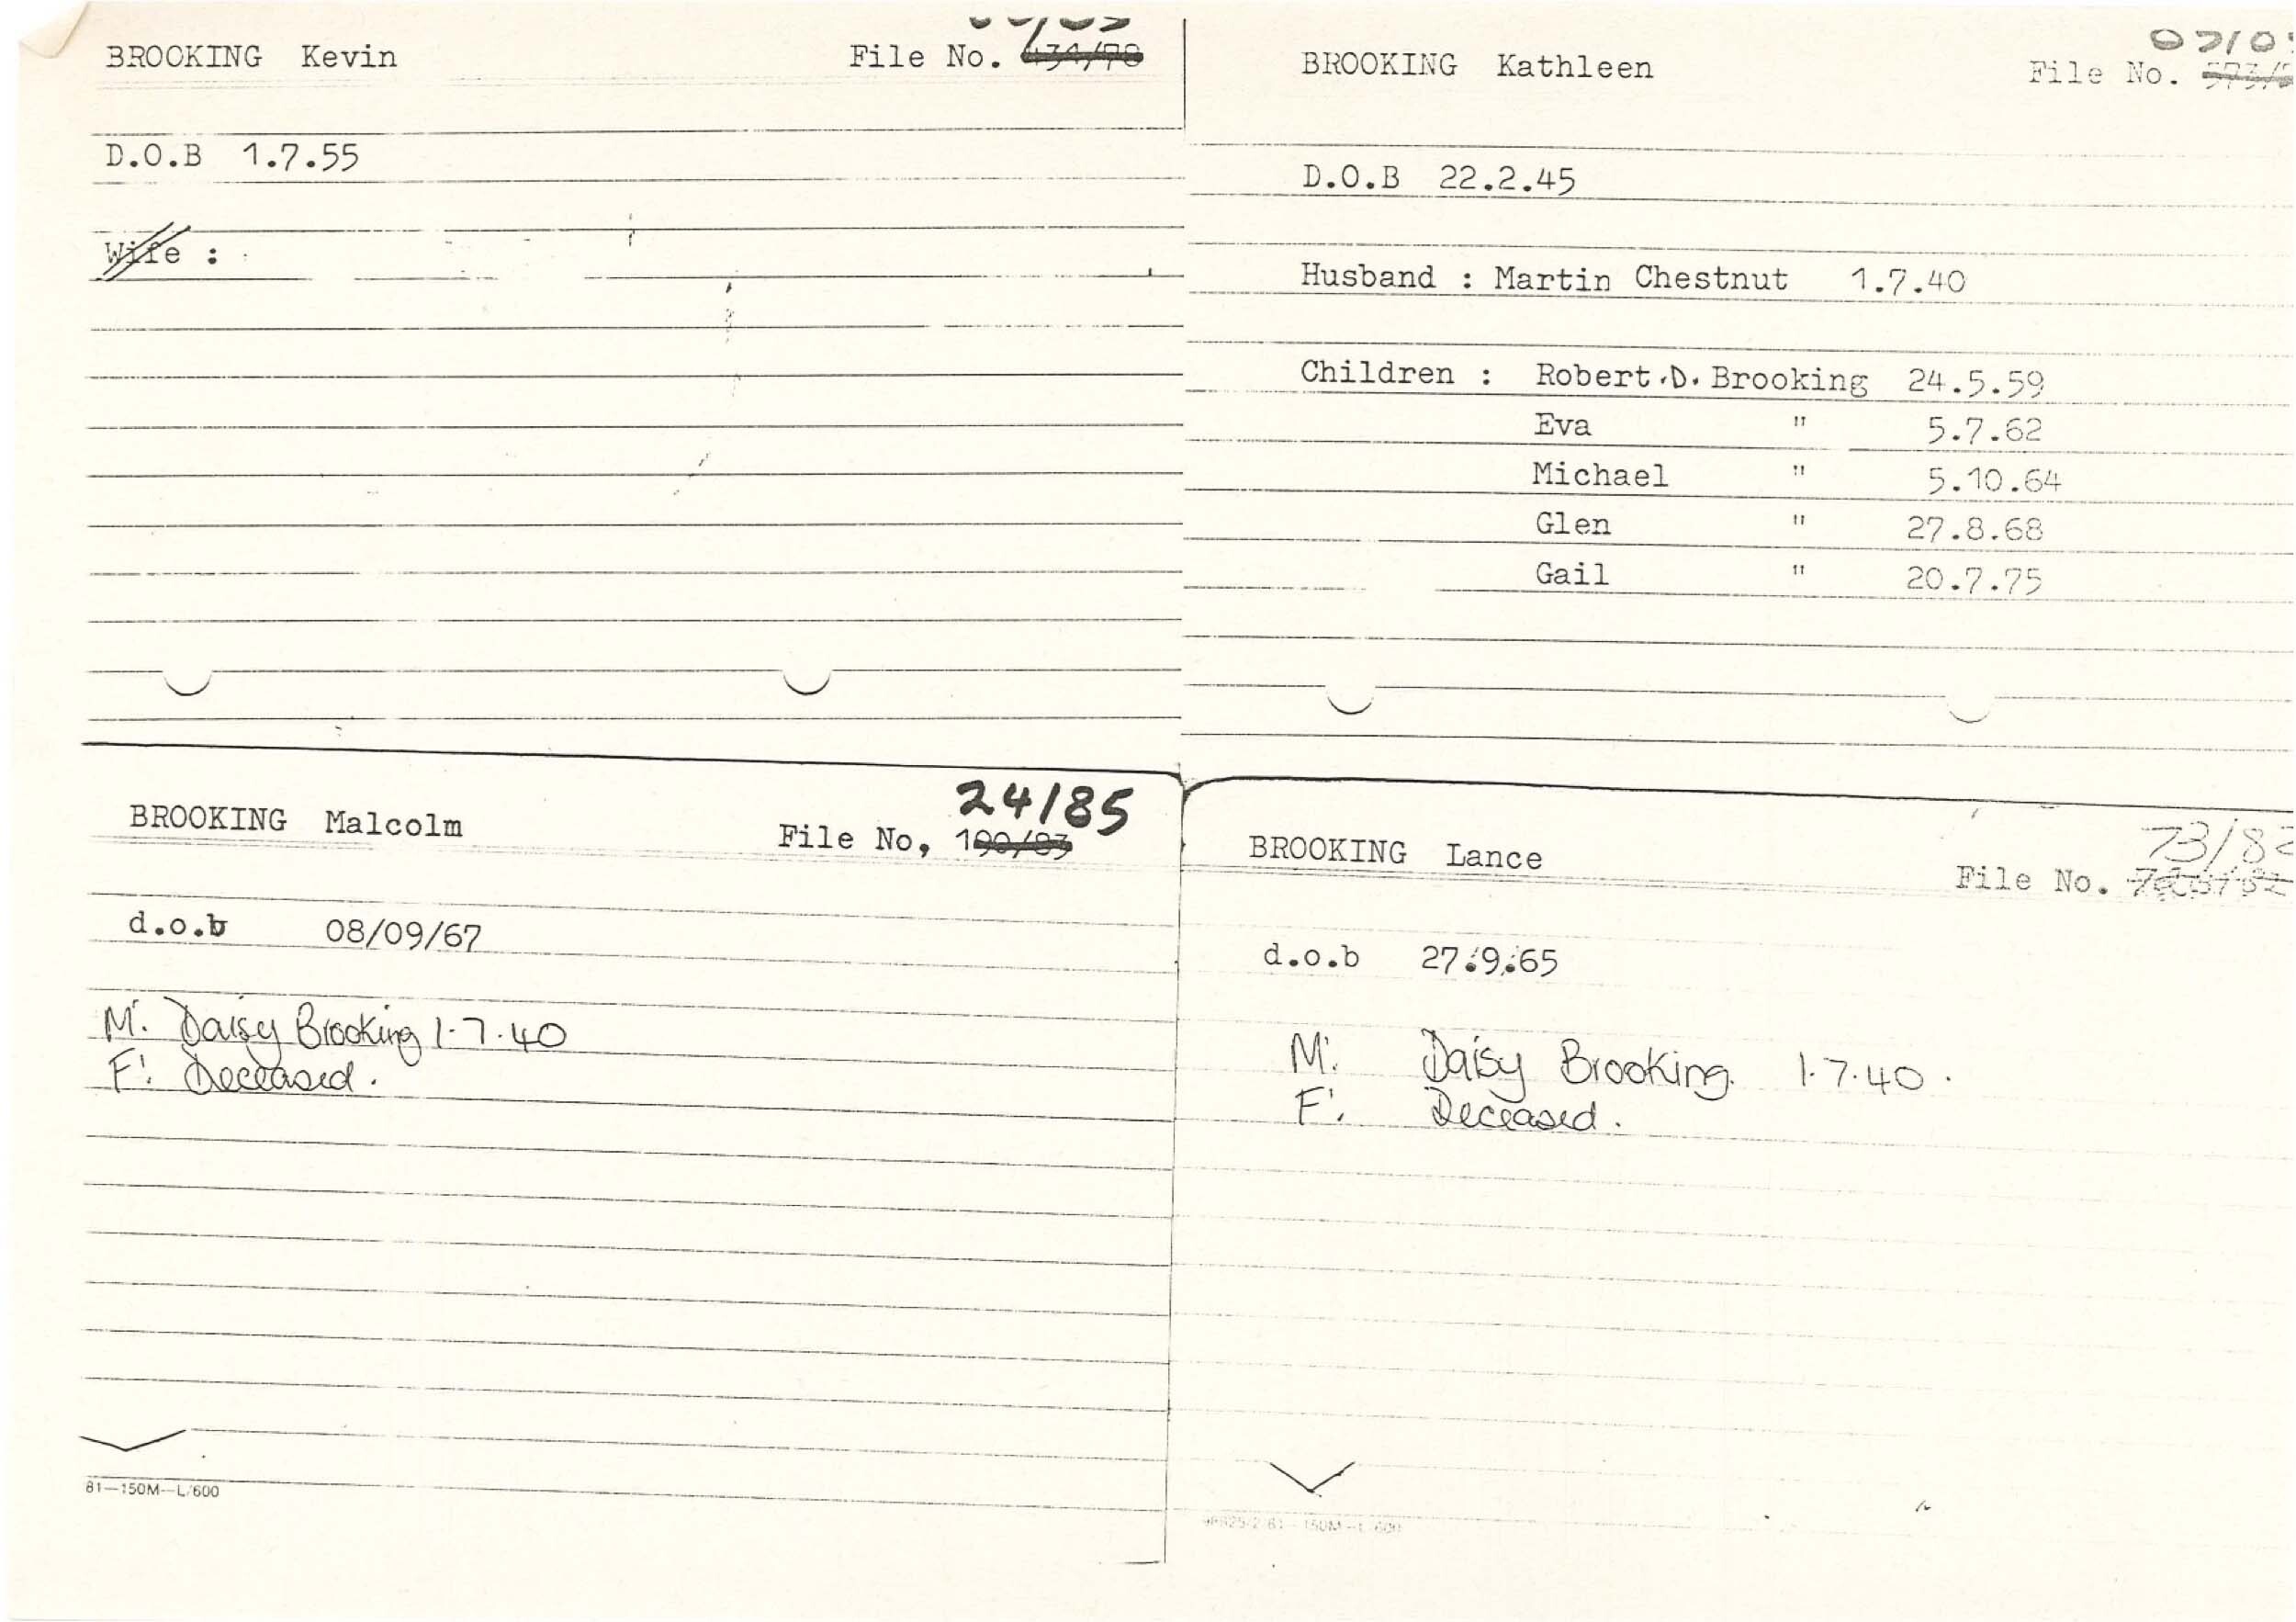 BROOKING Kevin File No.
D.O.B 1.7.55
Wife :
BROOKING Kathleen
File No.
D.O.B 22.2.45
Husband : Martin Chestnut 1.7.40
Children : Robert.D. Brooking 24.5.59
Eva " 5.7.62
Michael " 5.10.64
Glen " 27.8.68
Gail " 20.7.75
24/85
BROOKING Malcolm File No, 190/83
d.o.b 08/09/67
M: Daisy Brooking 1.7.40
F: Deceased.
81—150M—L/600
73/82
BROOKING Lance File No.
d.o.b 27.9.65
M: Daisy Brooking. 1.7.40.
F: Deceased.